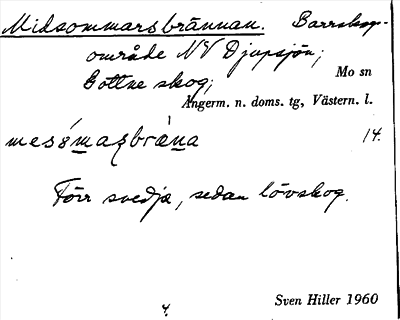 Midsommarsbrännan. Barrskog-
område NV Djupsjön;
Gottne skog;
Mo sn
Ångerm. n. doms. tg, Västern. l.
14.
Förr svedja, sedan lövskog.
4.
Sven Hiller 1960